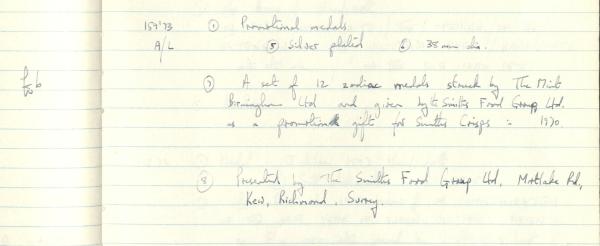 159'73 ① Promotional medals
A/L ⑤ Silver plated ⑥ 38 mm dia.
⑦ A set of 12 zodiac medals struck by The Mint
Birmingham Ltd and given by the Smiths Food Group Ltd.
as a promotional gift for Smiths Crisps :- 1970.
⑧ Presented by The Smiths Food Group Ltd, Mortlake Rd,
Kew, Richmond, Surrey.